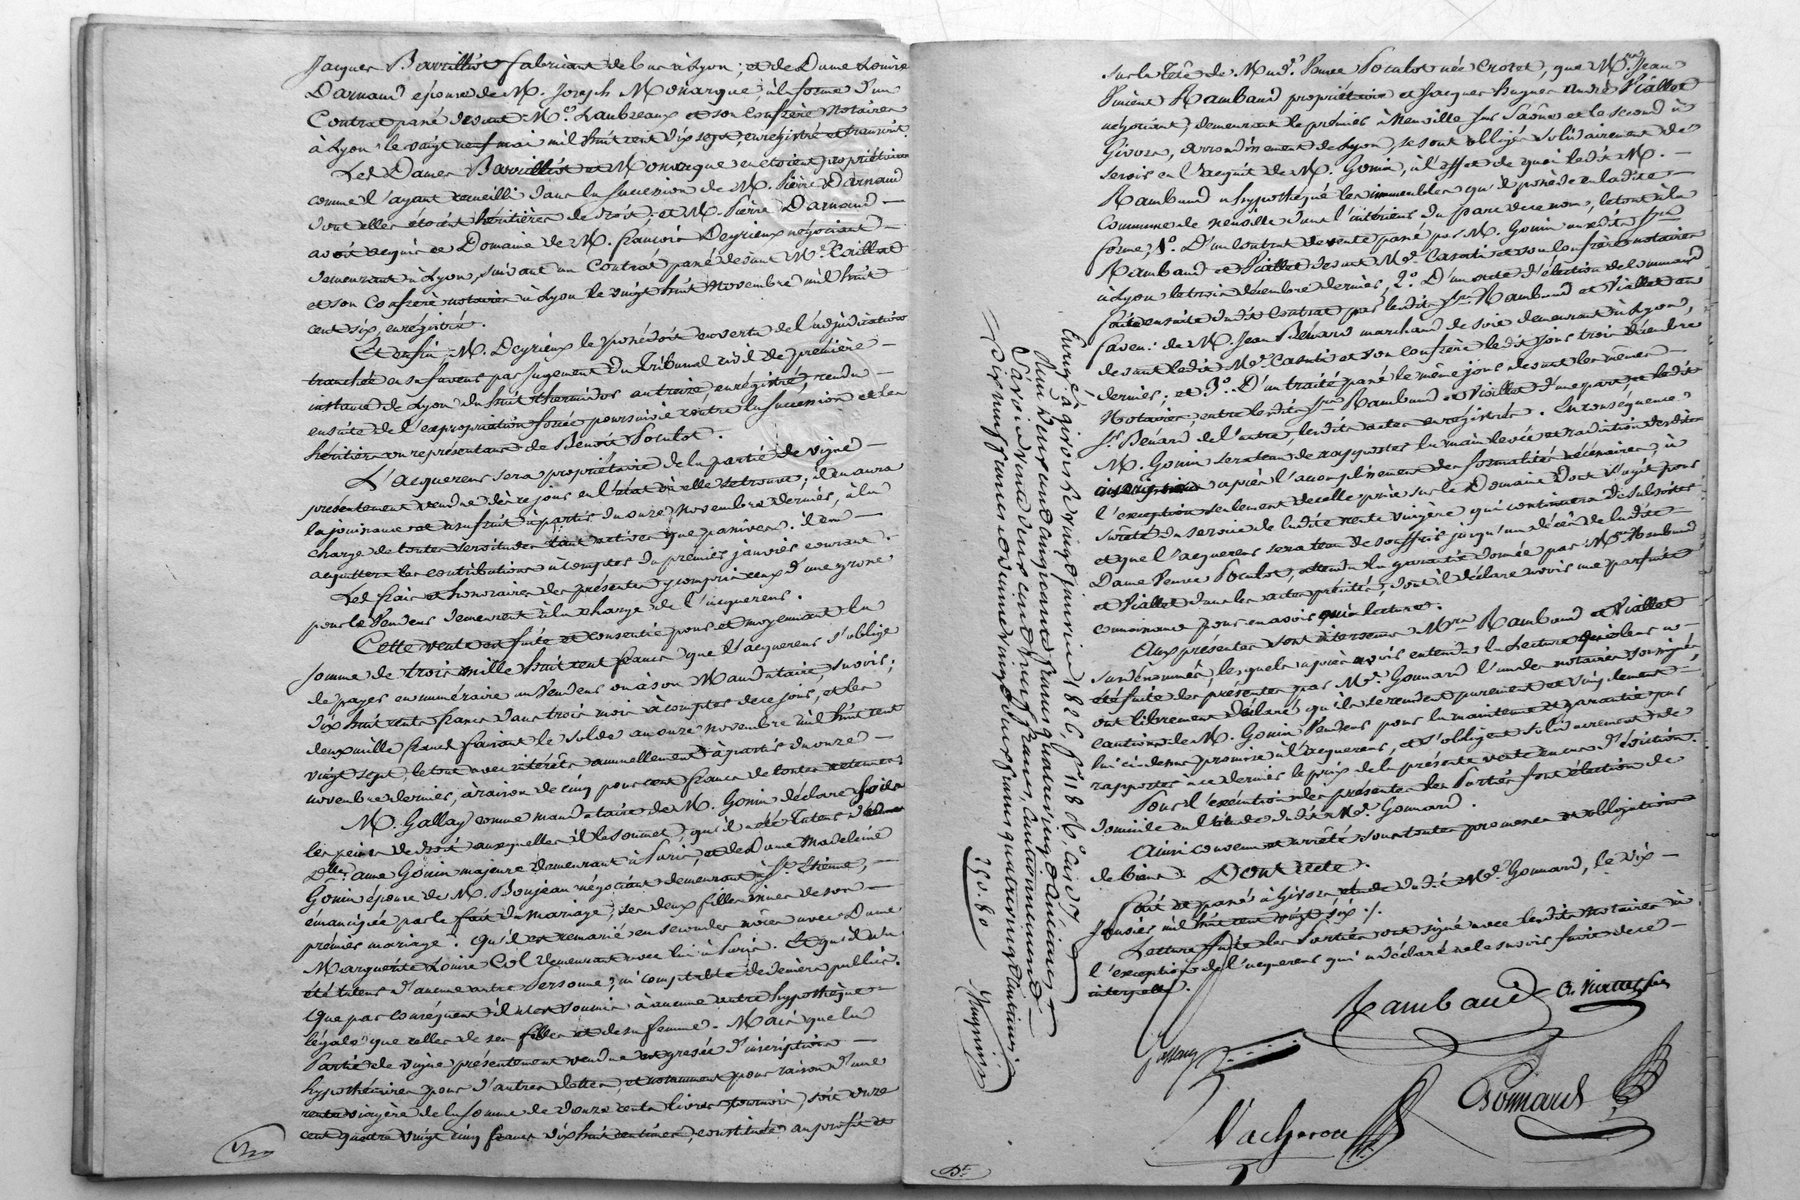 Jacques Bavillis fabricant de bas à Lyon; et de Dame Louise
Darnaud épouse de M. Joseph Monarque, à la forme d'un
Contrat passé devant Me. Laubreaux et son Confrère Notaires
à Lyon le vingt neuf mai mil huit cent dix sept, enregistré et transcrit.
Les Dames et Monarque en étoient propriétaires
comme l'ayant recueilli dans la succession de M. Pierre Darnaud
dont elles étoient héritières de droit; et M. Pierre Darnaud
avoit acquis ce Domaine de M. françois Deyrieux négociant
demeurant à Lyon, suivant un Contrat passé devant Me. Caillat
et son Confrère notaires à Lyon le vingt huit Novembre mil huit
cent six, enregistré.
Et enfin, M. Deyrieux le possédoit en vertu de l'adjudication
tranchée en sa faveur par Jugement du Tribunal civil de première
instance de Lyon du huit thermidor an treize, enregistré, rendu
ensuite de l'expropriation forcée poursuivie contre la succession et les
héritiers ou représentans de Benoit Poculot.
L'acquereur sera propriétaire de la partie de vigne
présentement vendue dès ce jour en l'état où elle se trouve; il en aura
la jouissance et usufruit à partir du onze Novembre dernier, à la
charge de toutes servitudes tant actives que passives. il en
acquittera les contributions à compter du premier janvier courant.
Les frais et honoraires des présentes y compris ceux d'une grosse
pour le Vendeur demeurent à la charge de l'acquereur.
Cette vente est faite et consentie pour et moyennant la
somme de trois mille huit cent francs que l'acquereur s'oblige
de payer en numéraire au Vendeur ou à son Mandataire, savoir;
dix huit cents francs dans trois mois à compter de ce jour, et les
deux mille francs faisant le solde au onze novembre mil huit cent
vingt sept, le tout avec intérêts annuellement à partir du onze
novembre dernier, à raison de cinq pour cent francs de toutes retenues.
M. Gallay comme mandataire de M. Gonin déclare sous
les peines de droit auxquelles il le soumet, qu'il a été Tuteur d'
Dlle. anne Gonin majeure demeurant à Paris, et de Dame Madeleine
Gonin épouse de M. Boujeau négociant demeurant à St. Etienne,
émancipée par le fait du mariage, ses deux filles issues de son
premier mariage. Qu'il est remarié en secondes noces avec Dame
Marguerite Louise Col demeurant avec lui à Paris. Et qu'il n'a
été tuteur d'aucune autre Personne, ni comptable de deniers publics.
Que par conséquent il n'est soumis à aucune autre hypothèque
légale que celles de ses filles et de sa femme. Mais que la
Partie de vigne présentement vendue est grevée d'inscriptions
hypothécaires pour d'autres dettes, et notamment pour raison d'une
rente viagère de la somme de douze cents livres tournois, soit onze
cent quatre vingt cinq francs dix huit centimes, constituée au profit et
sur la tête de Made. Veuve Poculot née Crozet, que Mrs. Jean
Vincent Rambaud propriétaire et Jacques Hugues André Viallet
négociant, demeurant le premier à Neuville sur Saône et le second à
Givors, arrondissement de Lyon, se sont obligés solidairement de
servir en l'acquit de M. Gonin, à l'effet de quoi ledit M.
Rambaud a hypothéqué les immeubles qu'il possède en ladite
Commune de Neuville dans l'intérieur du parc de ce nom, le tout à la
forme, 1o. D'un Contrat de vente passé par M. Gonin auxdits Srs.
Rambaud et Viallet devant Me. Casati et son Confrère notaires
à Lyon le trois décembre dernier, 2o. D'un acte d'élection de command
faite ensuite dudit Contrat par lesdits Srs. Rambaud et Viallet en
faveur de M. Jean Benard marchand de soie demeurant à Lyon,
devant ledit Me. Casati et son confrère ledit jour trois décembre
dernier; et 3o. D'un traité passé le même jour devant les mêmes
Notaires, entre lesdits Srs. Rambaud et Viallet d'une part, et ledit
Sr. Benard de l'autre, lesdits actes enregistrés. En conséquence
M. Gonin sera tenu de rapporter la main levée et radiation desdites
inscriptions après l'accomplissement des formalités nécessaires, à
l'exception seulement de celle prise sur le Domaine dont s'agit pour
sûreté du service de ladite rente viagère qui continuera de subsister
et que l'acquereur sera tenu de souffrir jusqu'au décès de ladite
Dame Veuve Poculot, attendu la garantie donnée par Mrs. Rambaud
et Viallet dans les actes précités, dont il déclare avoir une parfaite
connoissance pour en avoir pris lecture.
Aux présentes sont intervenus Mrs. Rambaud et Viallet
susdénommés, lesquels après avoir entendu la Lecture qui leur a
été faite des présentes par Me. Gonnard l'un des notaires soussignés,
ont librement déclaré qu'ils se rendent purement et simplement
cautions de M. Gonin Vendeur pour la maintenue et garantie par
lui ci-dessus promise à l'acquereur, et s'obligent solidairement de
rapporter à ce dernier le prix de la présente vente en cas d'éviction.
Pour l'exécution des présentes les Parties font élection de
domicile en l'étude dudit Me. Gonnard.
Ainsi convenu et arrêté sous toutes promesses et obligations
de biens. Dont acte.
Fait et passé à Givors étude dudit Me. Gonnard, le dix
Janvier mil huit cent vingt six ./.
Lecture faite les Parties ont signé avec lesdits Notaires à
l'exception de l'acquereur qui a déclaré ne le savoir faire de ce
interpellé.
Rambaud
Gallay
Vacheron
Gonnard
Enregé à givors le vingt janvier 1826, fo. 118 Vo. Cases 7
Reçu Deux cent cinquante francs quatre vingt centimes
Savoir vente deux cent neuf francs, Cautionnement
dix neuf francs, et dixième vingt deux francs quatre vingt centimes
250.80